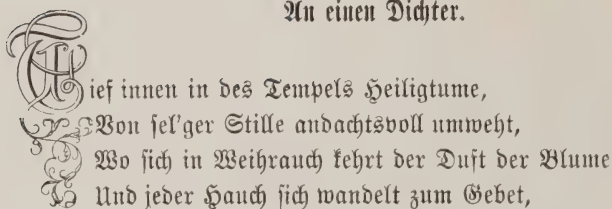 An einen Dichter.
Tief innen in des Tempels Heiligtume,
Von sel'ger Stille andachtsvoll umweht,
Wo sich in Weihrauch kehrt der Duft der Blume
Und jeder Hauch sich wandelt zum Gebet,